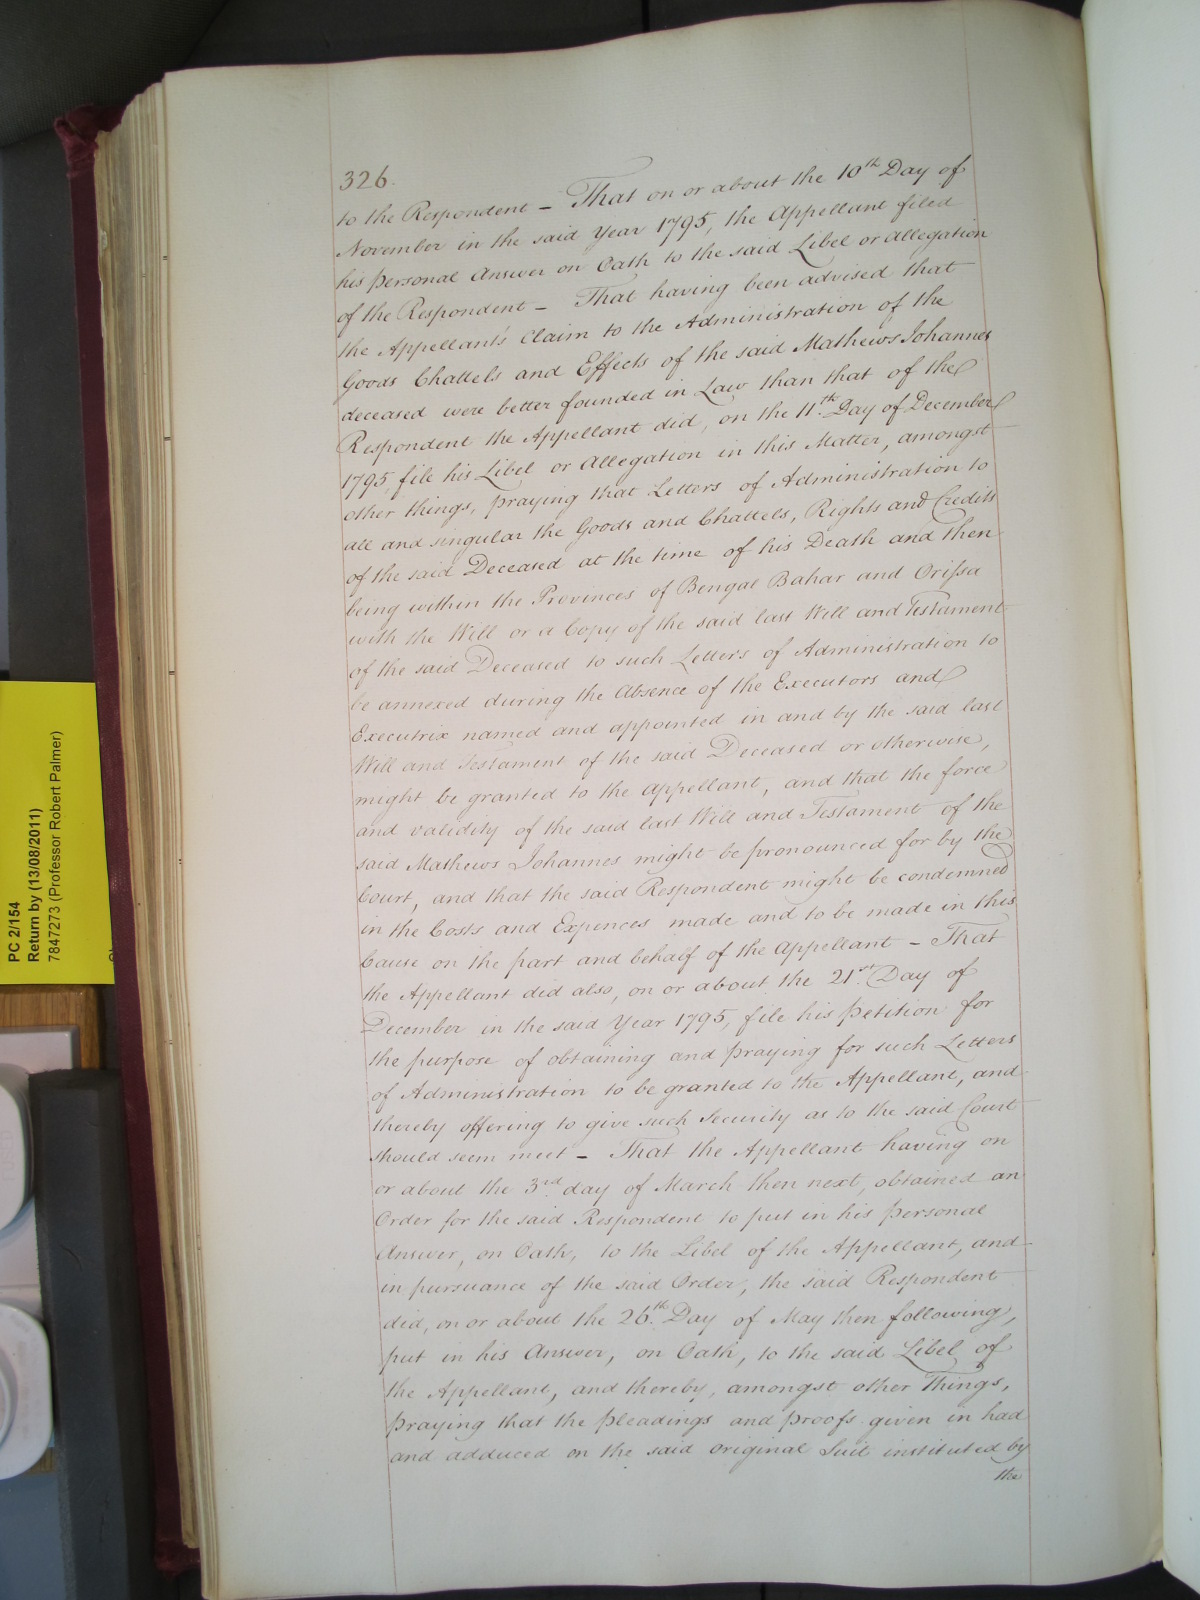 326.
to the Respondent – That on or about the 10th Day of
November in the said Year 1795, the Appellant filed
his personal Answer on Oath to the said Libel or Allegation
of the Respondent – That having been advised that
the Appellant's Claim to the Administration of the
Goods Chattels and Effects of the said Mathews Johannes
deceased were better founded in Law than that of the
Respondent the Appellant did, on the 11th Day of December
1795, file his Libel or Allegation in this Matter, amongst
other things, praying that Letters of Administration to
all and singular the Goods and Chattels, Rights and Credits
of the said Deceased at the time of his Death and then
being within the Provinces of Bengal Bahar and Orissa
with the Will or a Copy of the said last Will and Testament
of the said Deceased to such Letters of Administration to
be annexed during the Absence of the Executors and
Executrix named and appointed in and by the said last
Will and Testament of the said Deceased or otherwise,
might be granted to the Appellant, and that the force
and validity of the said last Will and Testament of the
said Mathews Johannes might be pronounced for by the
Court, and that the said Respondent might be condemned
in the Costs and Expences made and to be made in this
Cause on the part and behalf of the Appellant – That
the Appellant did also, on or about the 21st. Day of
December in the said Year 1795, file his Petition for
the purpose of obtaining and praying for such Letters
of Administration to be granted to the Appellant, and
thereby offering to give such Security as to the said Court
should seem meet – That the Appellant having on
or about the 3rd. day of March then next, obtained an
Order for the said Respondent to put in his personal
Answer, on Oath, to the Libel of the Appellant, and
in pursuance of the said Order, the said Respondent
did, on or about the 26th. Day of May then following,
put in his Answer, on Oath, to the said Libel of
the Appellant, and thereby, amongst other Things,
praying that the pleadings and proofs given in had
and adduced on the said original Suit instituted by
the
PC 2/154
Return by (13/08/2011)
7847273 (Professor Robert Palmer)